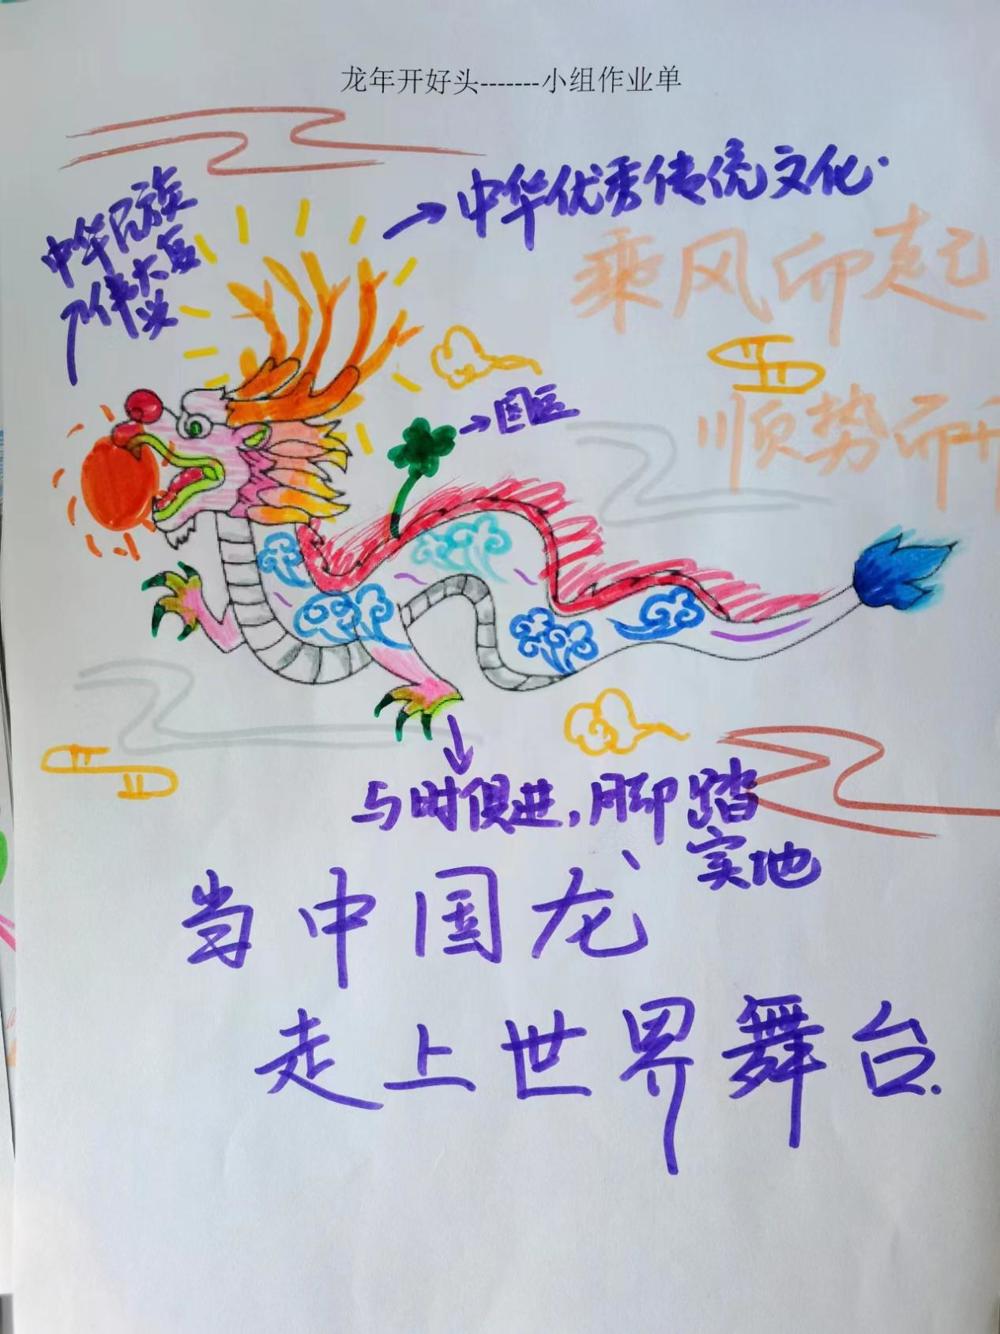 龙年开好头-------小组作业单
中华优秀传统文化.
中华民族
伟大复
兴
乘风而起
顺势而
国运
与时俱进,脚踏
实地
当中国龙
走上世界舞台.